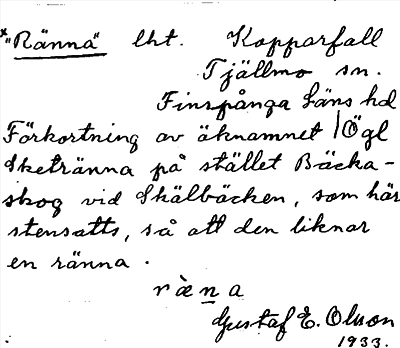 *"Ränna" lht. Kopparfall
Tjällmo sn.
Finspånga läns hd
Förkortning av öknamnet / Ögl
Sketränna på stället Bäcka-
skog vid Skälbäcken, som här
stensatts, så att den liknar
en ränna.
ræ̀na
Gustaf E. Olsson
1933.